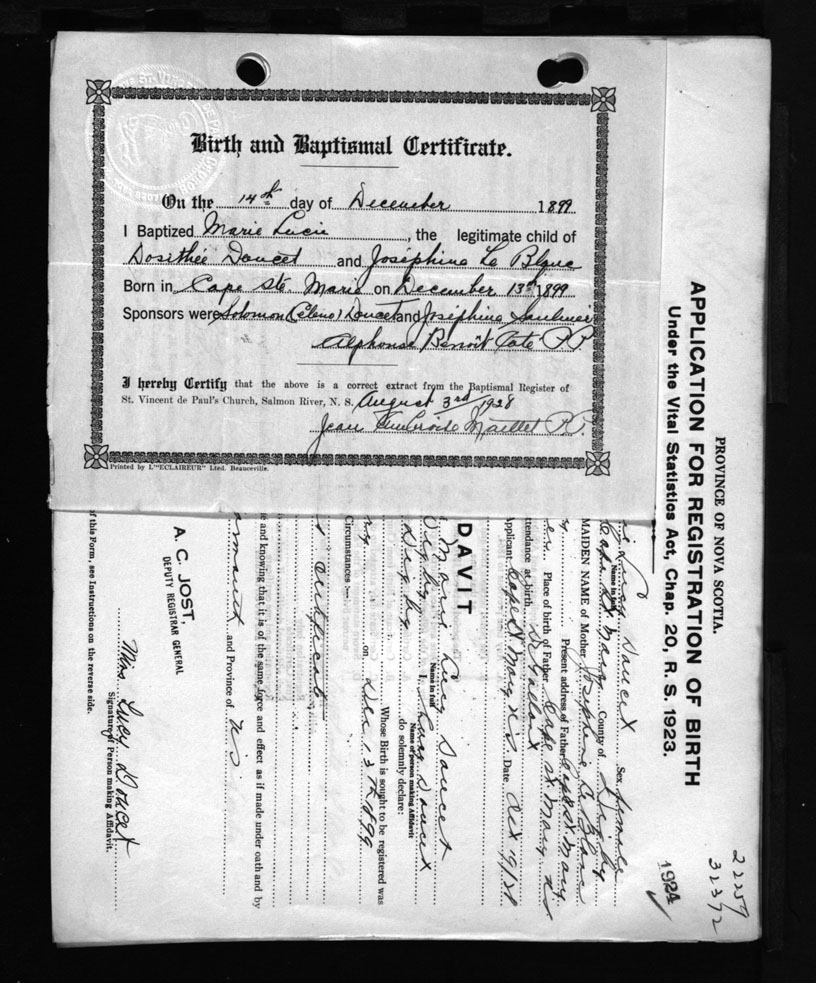 Birth and Baptismal Certificate.
On the 14th day of December 1899
I Baptized Marie Lucie, the legitimate child of
Dosithée Doucet and Joséphine Le Blanc
Born in Cape Ste. Marie on December 13th 1899
Sponsors were Solomon (Cléno) Doucet and Joséphine Saulnier
Alphonse Benoit Coté P.P.
I hereby Certify that the above is a correct extract from the Baptismal Register of
St. Vincent de Paul's Church, Salmon River, N. S. August 3rd 1928
Jean Ambroise Maillet P.P.
Printed by L'"ECLAIREUR" Lted. Beauceville.
PROVINCE OF NOVA SCOTIA.
APPLICATION FOR REGISTRATION OF BIRTH
Under the Vital Statistics Act, Chap. 20, R. S. 1923.
22259
32372
1924
Lucy Doucet Sex female
Name in full
Cape St Mary County of Digby
MAIDEN NAME of Mother Josephine Le Blanc
Present address of Father Cape St Mary
Place of birth of Father Cape St Mary NS
attendance at birth
Applicant Cape St Mary NS Date
DAVIT
Marie Lucy Doucet
Name in full
Digby I, Lucy Doucet
Name of person making Affidavit
Digby do solemnly declare:
Whose Birth is sought to be registered was
on Dec 13th 1899
Circumstances :—
certificate
e and knowing that it is of the same force and effect as if made under oath and by
and Province of NS
A. C. JOST,
DEPUTY REGISTRAR GENERAL
Miss Lucy Doucet
Signature of Person making Affidavit.
of this Form, see Instructions on the reverse side.